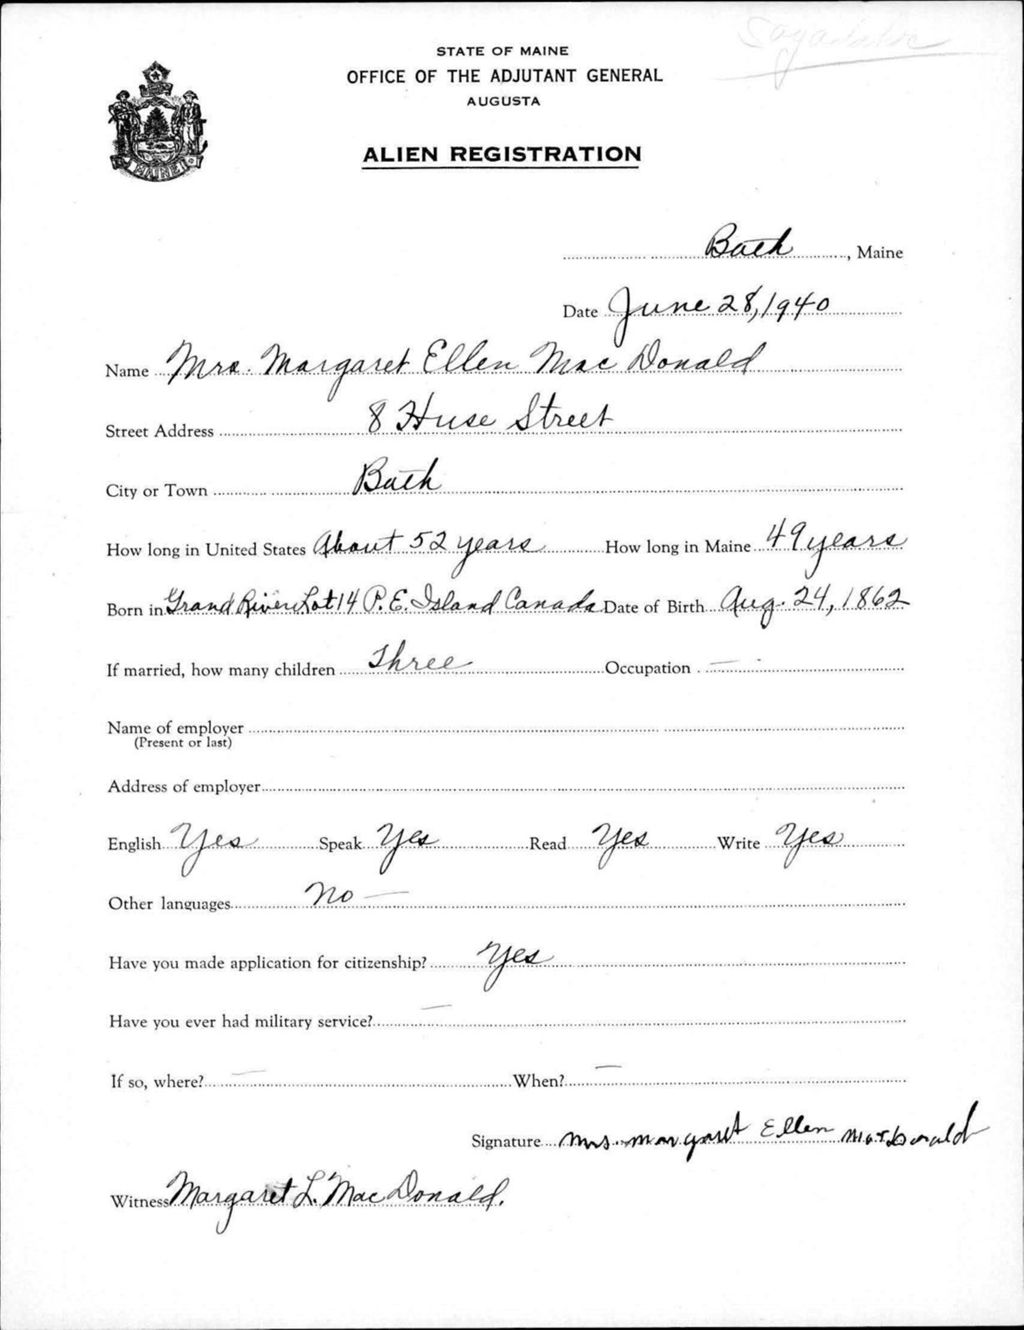 Sagadahoc
STATE OF MAINE
OFFICE OF THE ADJUTANT GENERAL
AUGUSTA
ALIEN REGISTRATION
MAINE
Bath, Maine
Date June 28, 1940
Name Mrs. Margaret Ellen Mac Donald
Street Address 8 Huse Street
City or Town Bath
How long in United States About 52 years How long in Maine 49 years
Born in Grand River Lot 14 P.E. Island Canada Date of Birth Aug. 24, 1862
If married, how many children Three Occupation —
Name of employer
(Present or last)
Address of employer
English Yes Speak Yes Read Yes Write Yes
Other languages No —
Have you made application for citizenship? Yes
Have you ever had military service? —
If so, where? — When? —
Signature Mrs. Margaret Ellen MacDonald
Witness Margaret L. MacDonald.